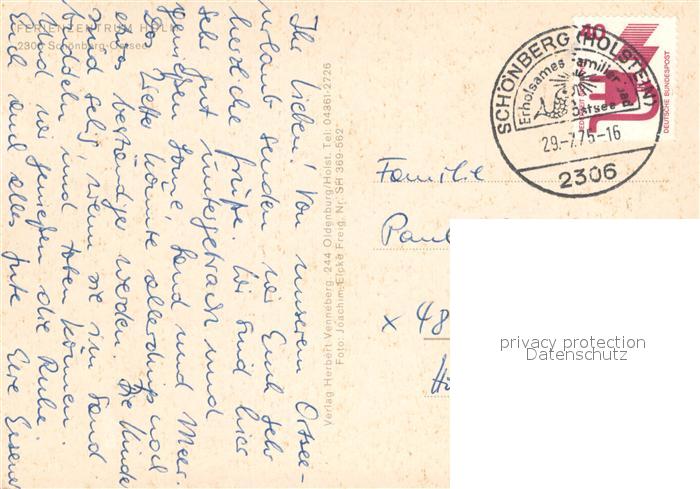 FERIENZENTRUM HOLM
2306 Schönberg-Ostsee
Ihr Lieben! Von unserem Ostsee-
urlaub senden wir Euch sehr
herzliche Grüße. Wir sind hier
sehr gut untergebracht und
genießen Sonne, Sand und Meer.
Das Wetter könnte allerdings noch
etwas beständiger werden. Die Kinder
sind selig, wenn sie im Sand
buddeln und toben können.
Und wir genießen die Ruhe
Euch und alles Gute Eure
Verlag Herbert Venneberg, 244 Oldenburg/Holst. Tel: 04361-2726
Foto: Joachim Elpke Freig. Nr. SH 369-562
SCHÖNBERG (HOLSTEIN)
Erholsames Familienbad
Ostsee
29.-7.75-16
2306
40
DEUTSCHE BUNDESPOST
Familie
Paul
x 48
privacy protection
Datenschutz